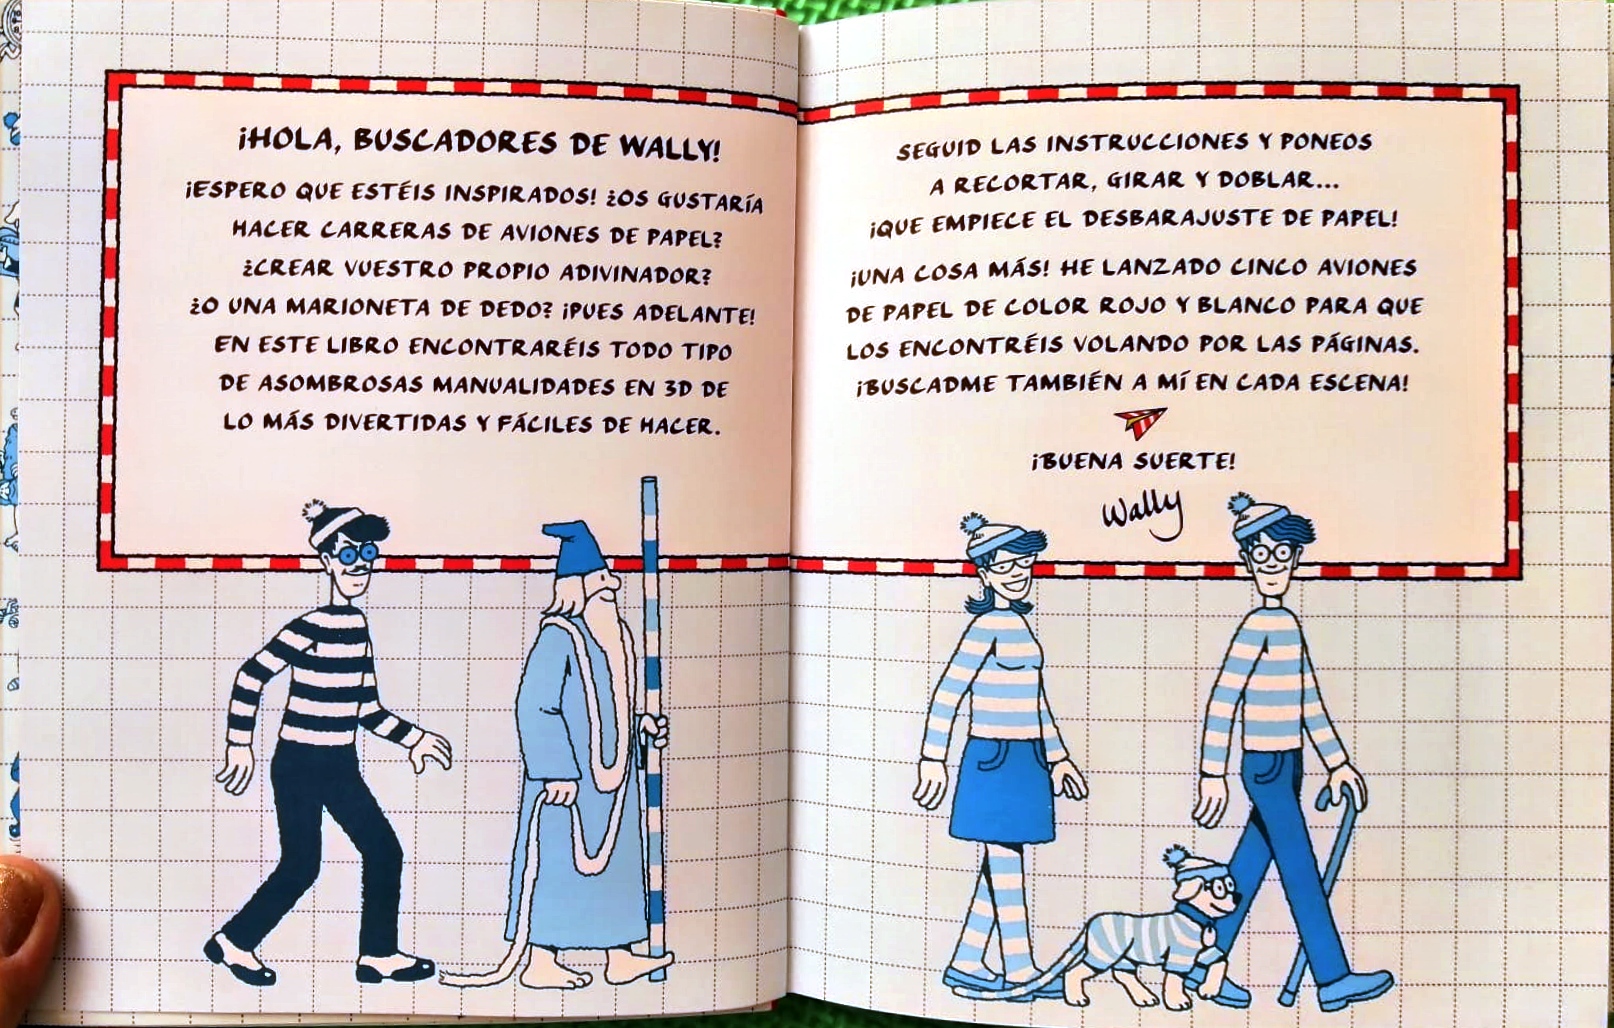 ¡HOLA, BUSCADORES DE WALLY!
¡ESPERO QUE ESTÉIS INSPIRADOS! ¿OS GUSTARÍA
HACER CARRERAS DE AVIONES DE PAPEL?
¿CREAR VUESTRO PROPIO ADIVINADOR?
¿O UNA MARIONETA DE DEDO? ¡PUES ADELANTE!
EN ESTE LIBRO ENCONTRARÉIS TODO TIPO
DE ASOMBROSAS MANUALIDADES EN 3D DE
LO MÁS DIVERTIDAS Y FÁCILES DE HACER.
SEGUID LAS INSTRUCCIONES Y PONEOS
A RECORTAR, GIRAR Y DOBLAR...
¡QUE EMPIECE EL DESBARAJUSTE DE PAPEL!
¡UNA COSA MÁS! HE LANZADO CINCO AVIONES
DE PAPEL DE COLOR ROJO Y BLANCO PARA QUE
LOS ENCONTRÉIS VOLANDO POR LAS PÁGINAS.
¡BUSCADME TAMBIÉN A MÍ EN CADA ESCENA!
¡BUENA SUERTE!
Wally